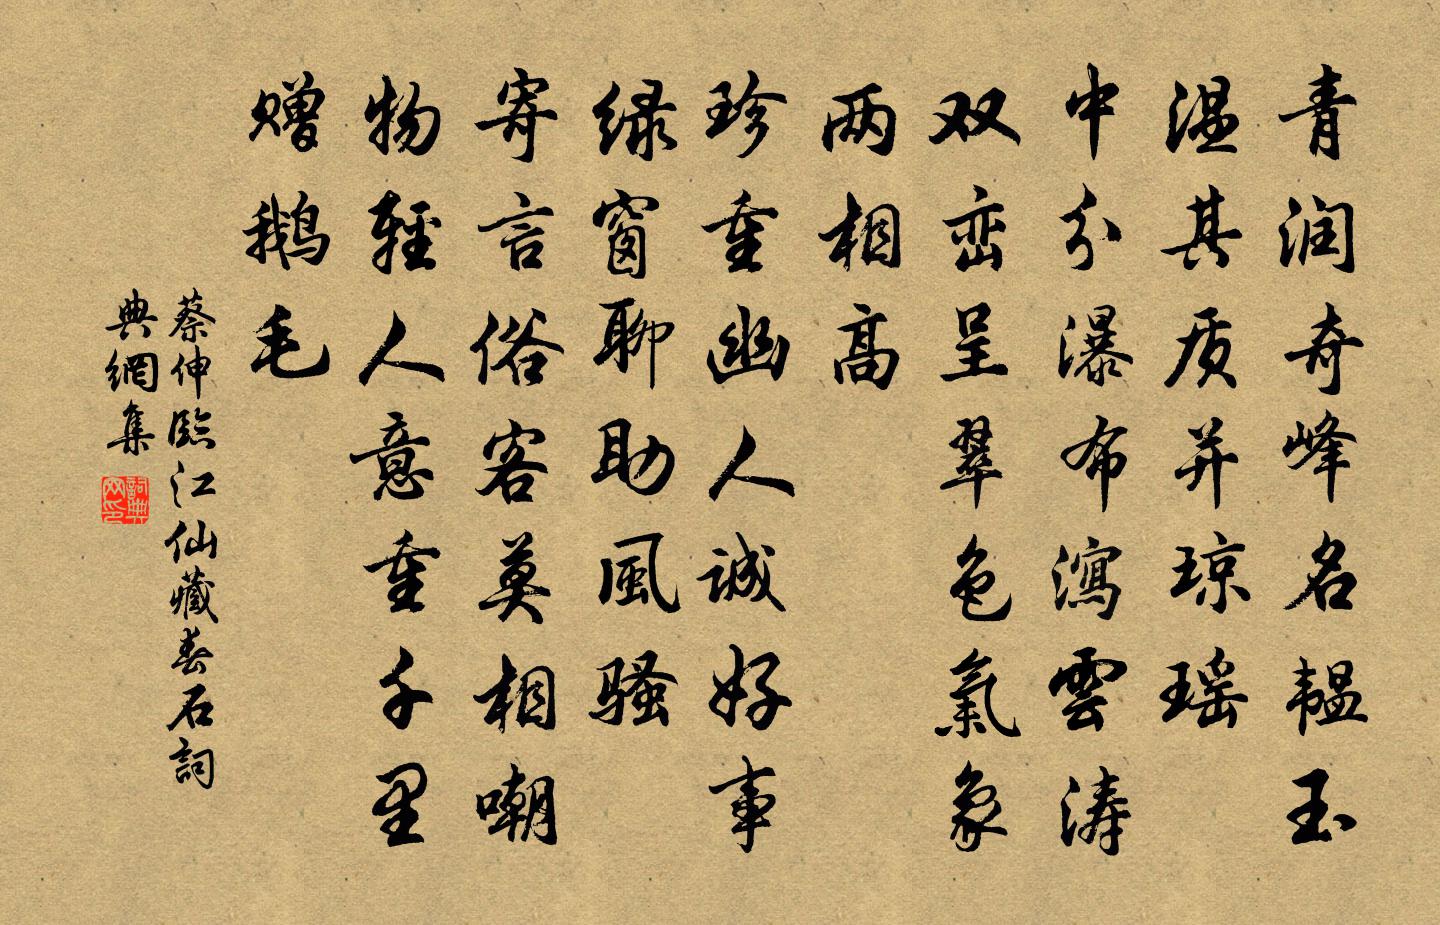 青润奇峰名韫玉
温其质并琼瑶
中分瀑布瀉雲涛
双峦呈翠色氣象
两相高
珍重幽人誠好事
绿窗聊助風骚
寄言俗客莫相嘲
物輕人意重千里
赠鹅毛
蔡伸臨江仙藏春石詞
典網集
詞典网印